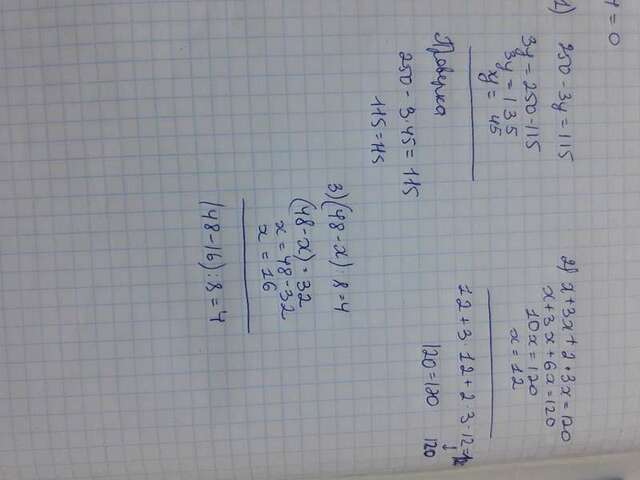 y = 0
1) 250 - 3y = 115
3y = 250 - 115
3y = 135
y = 45
Проверка
250 - 3·45 = 115
115 = 115
2) x + 3x + 2·3x = 120
x + 3x + 6x = 120
10x = 120
x = 12
12 + 3·12 + 2·3·12 =
120
120 = 120
3) (48 - x) : 8 = 4
(48 - x) = 32
x = 48 - 32
x = 16
(48 - 16) : 8 = 4